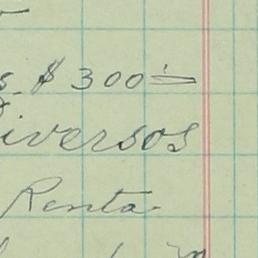 $ 300
Diversos
Renta